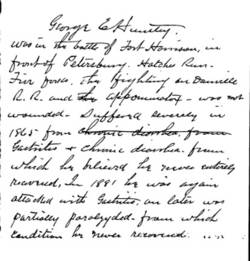 George E. Huntley.
was in the battle of Fort Harrison, in
front of Petersburg. Hatchs Run-
Five Forks, the fighting on Danville
R. R. and the Appomattox - was not
wounded. Suffered severely in
1865 from chronic diorhea, from
Gastritis & Chronic diorhea. from
which he believed he never entirely
recovered, In 1891 he was again
attacked with Gastritis, an later was
partially paralyzed. from which
condition he never recovered.